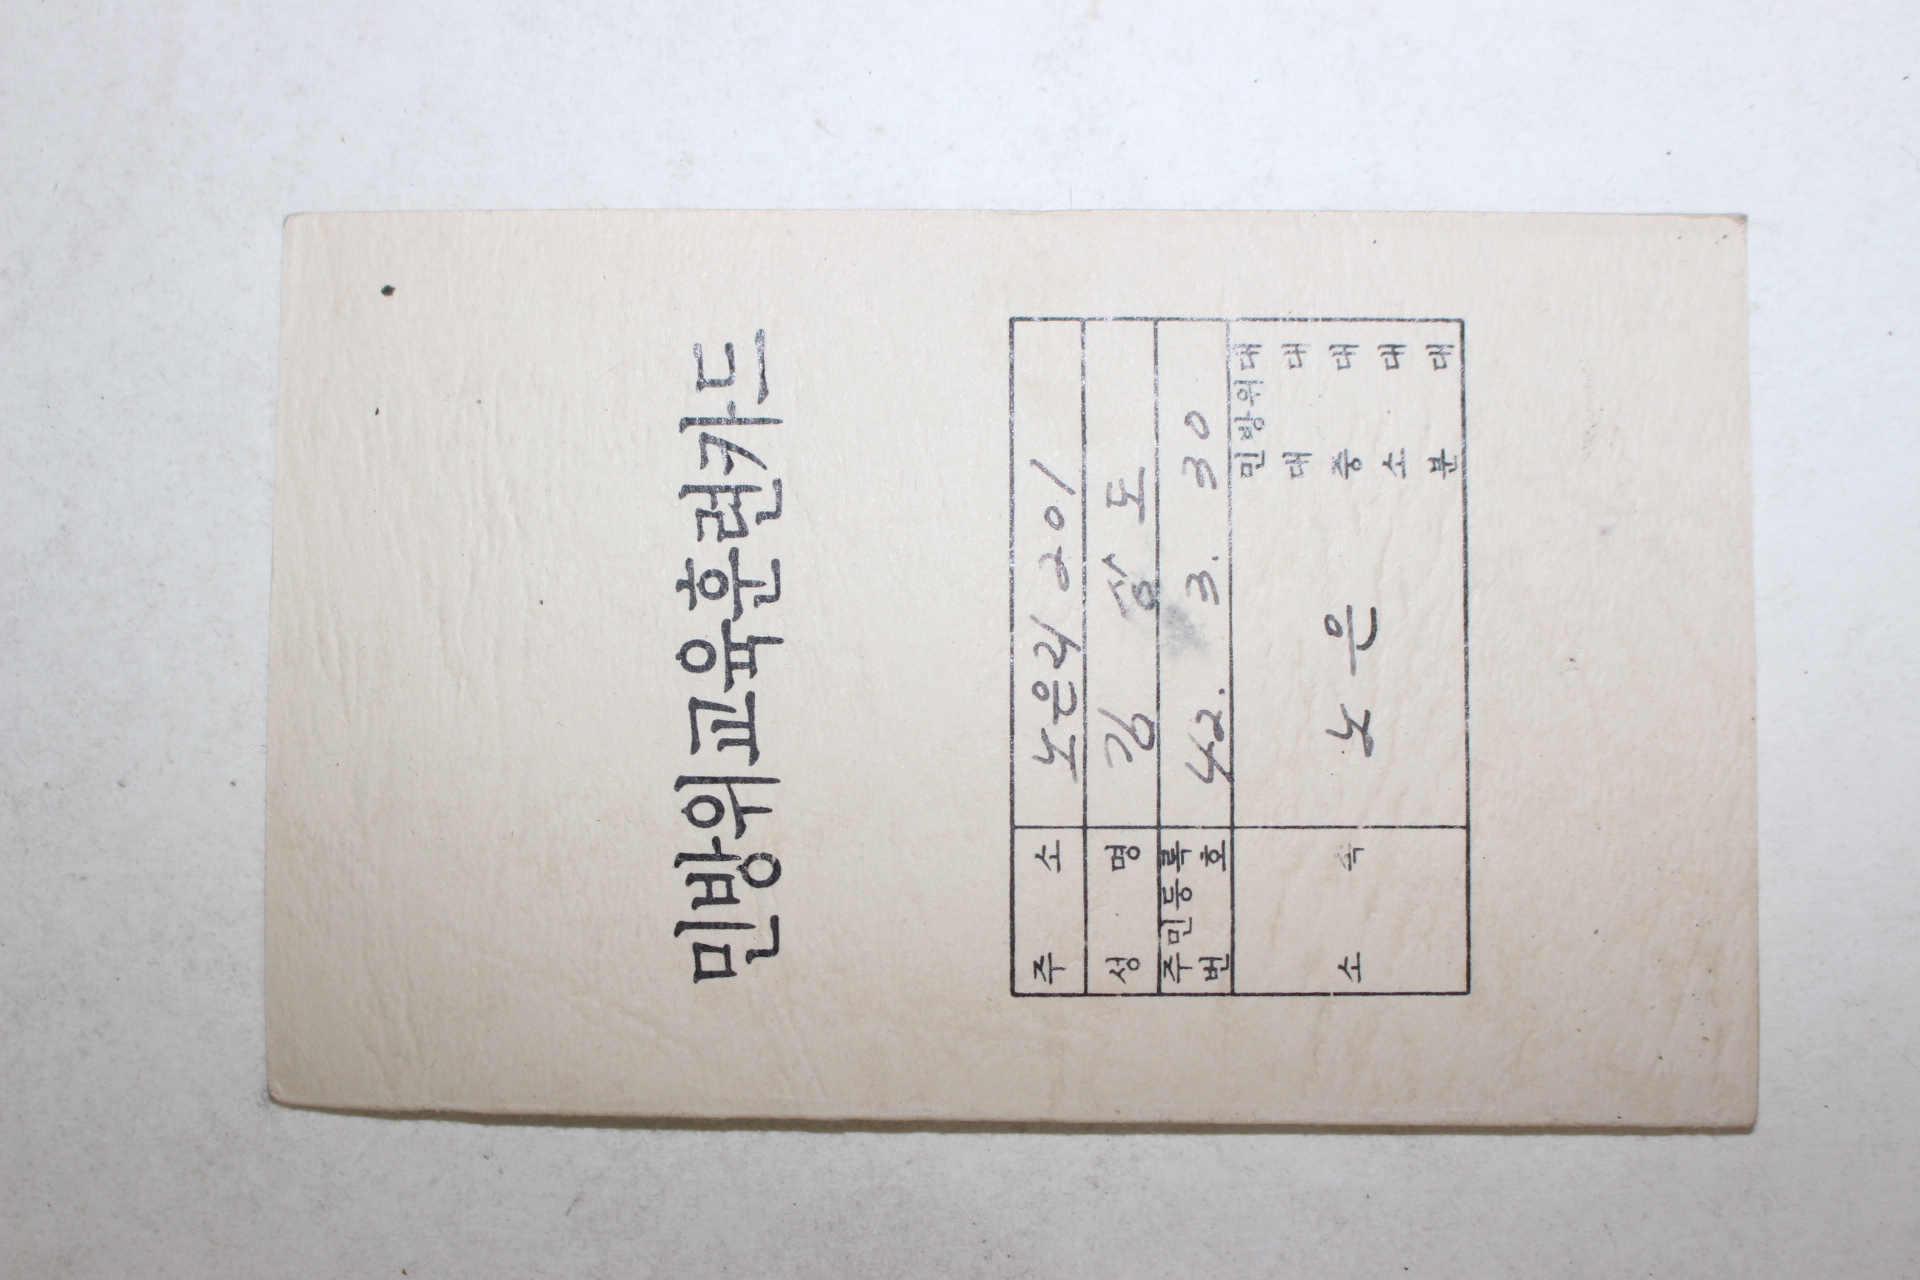 민방위교육훈련카드
주 소 노은리 201
성 명 김 도
주민등록 번 호 42. 3. 30
소 속 노은
민방위대
대 대
중 대
소 대
분 대